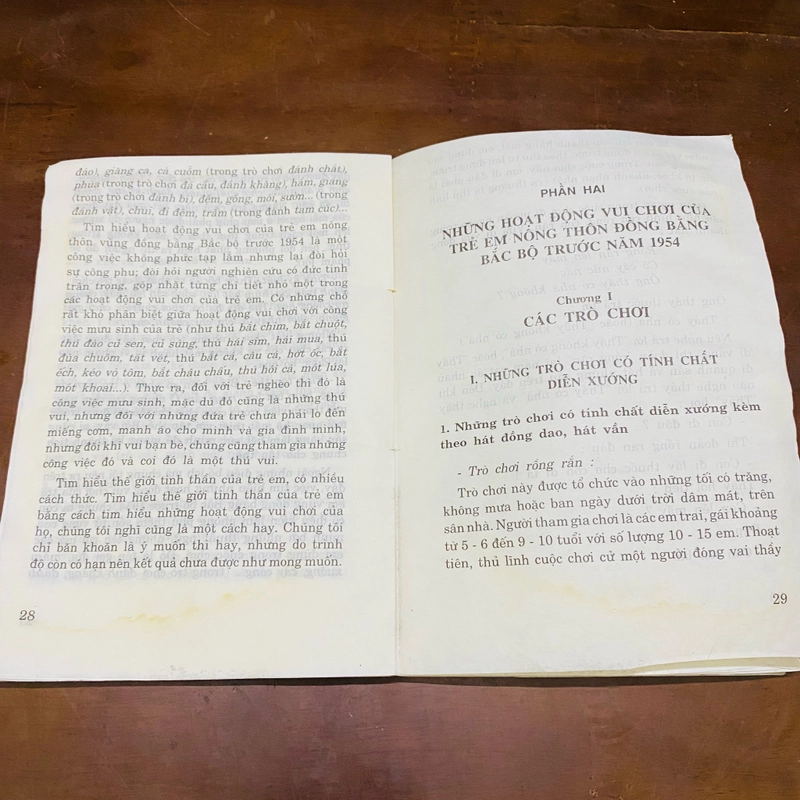 đáo), giàng ca, cà cuồm (trong trò chơi đánh chắt),
phùa (trong trò chơi đá cầu, đánh khăng), hầm, giang
(trong trò chơi đánh bi), đệm, gồng, mói, sườn... (trong
đánh vật), chui, đi đêm, trầm (trong đánh tam cúc)...
Tìm hiểu hoạt động vui chơi của trẻ em nông
thôn vùng đồng bằng Bắc Bộ trước 1954 là một
công việc không phức tạp lắm nhưng lại đòi hỏi
sự công phu; đòi hỏi người nghiên cứu có đức tính
trân trọng, góp nhặt từng chi tiết nhỏ một trong
các hoạt động vui chơi của trẻ em. Có những chỗ
rất khó phân biệt giữa hoạt động vui chơi với công
việc mưu sinh của trẻ (như thú bắt chim, bắt chuột,
thú đào củ sen, củ súng, thú hái sim, hái mua, thú
đùa chuồm, tát vét, thú bắt cá, câu cá, hớt ốc, bắt
ếch, kéo vó tôm, bắt châu chấu, thú hôi cá, mót lúa,
mót khoai...). Thực ra, đối với trẻ nghèo thì đó là
công việc mưu sinh, mặc dù đó cũng là những thú
vui, nhưng đối với những đứa trẻ chưa phải lo đến
miếng cơm, manh áo cho mình và gia đình mình,
nhưng đôi khi vui bạn bè, chúng cũng tham gia những
công việc đó và coi đó là một thú vui.
Tìm hiểu thế giới tinh thần của trẻ em, có nhiều
cách thức. Tìm hiểu thế giới tinh thần của trẻ em
bằng cách tìm hiểu những hoạt động vui chơi của
họ, chúng tôi nghĩ cũng là một cách hay. Chúng tôi
chỉ băn khoăn là ý muốn thì hay, nhưng do trình
độ còn có hạn nên kết quả chưa được như mong muốn.
28
PHẦN HAI
NHỮNG HOẠT ĐỘNG VUI CHƠI CỦA
TRẺ EM NÔNG THÔN ĐỒNG BẰNG
BẮC BỘ TRƯỚC NĂM 1954
Chương I
CÁC TRÒ CHƠI
I. NHỮNG TRÒ CHƠI CÓ TÍNH CHẤT
DIỄN XƯỚNG
1. Những trò chơi có tính chất diễn xướng kèm
theo hát đồng dao, hát vần
- Trò chơi rồng rắn :
Trò chơi này được tổ chức vào những tối có trăng,
không mưa hoặc ban ngày dưới trời dâm mát, trên
sân nhà. Người tham gia chơi là các em trai, gái khoảng
từ 5 - 6 đến 9 - 10 tuổi với số lượng 10 - 15 em. Thoạt
tiên, thủ lĩnh cuộc chơi cử một người đóng vai thầy
29